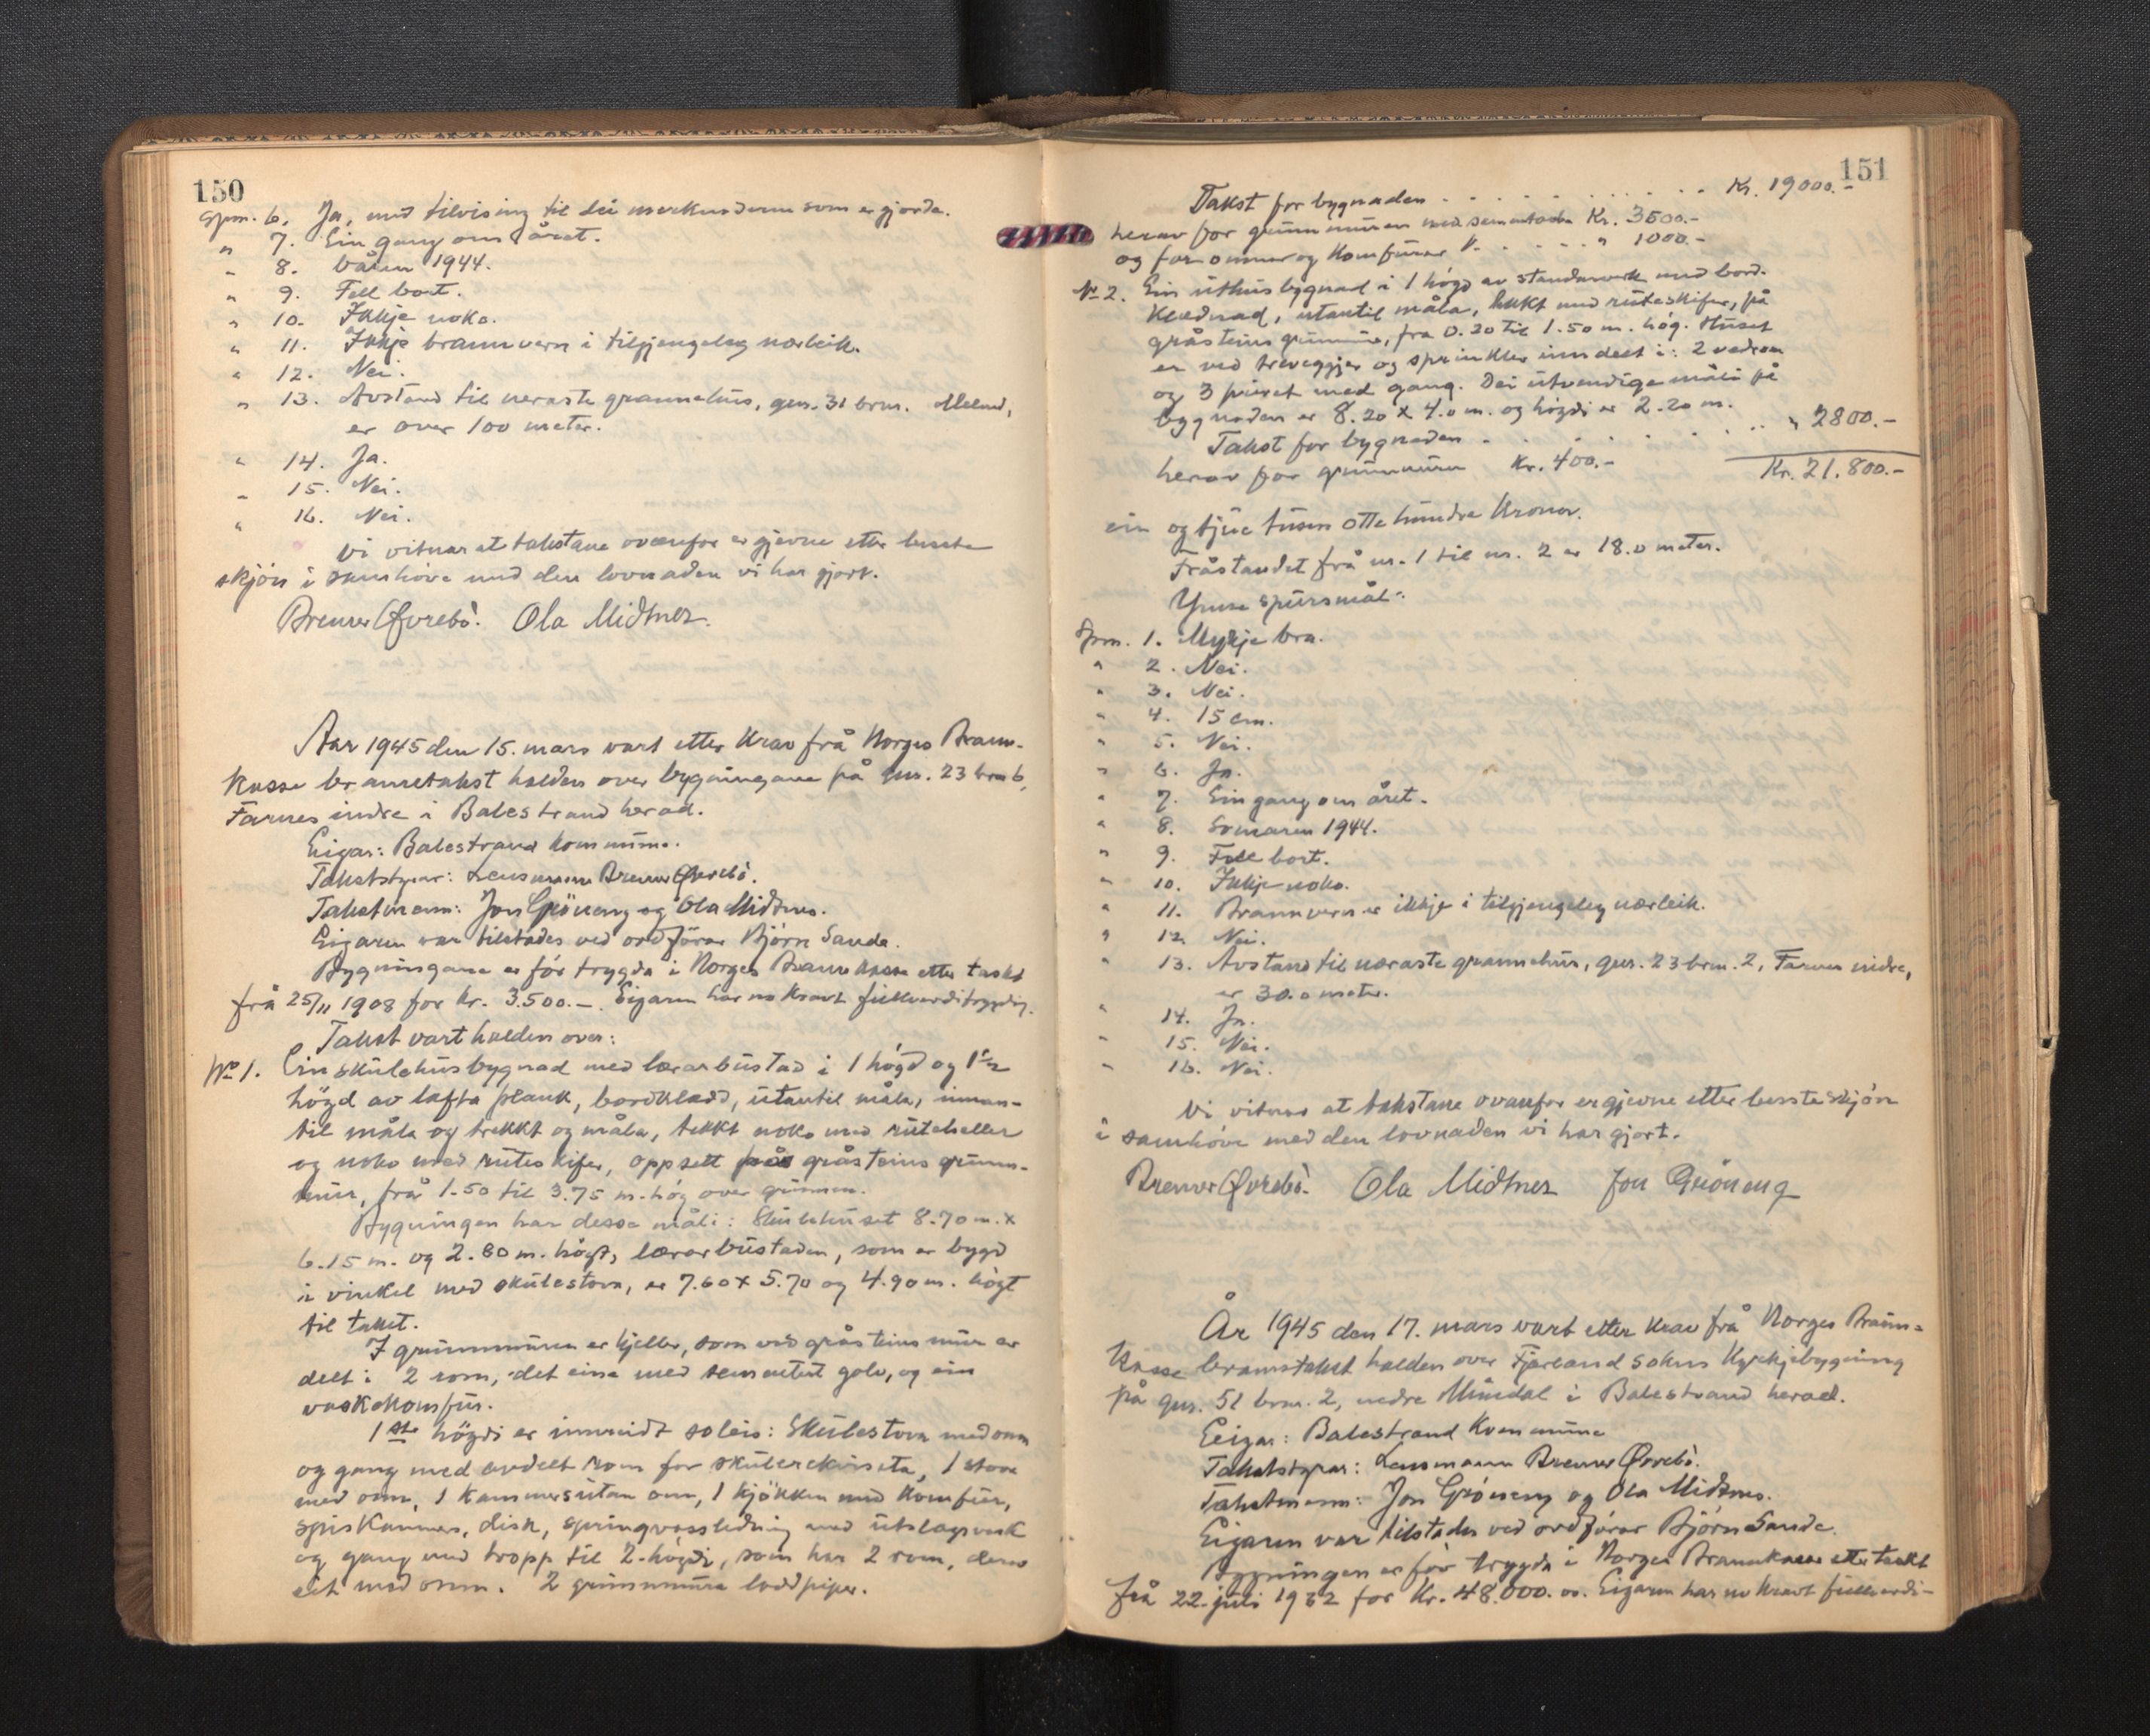 150
Spm. 6. Ja, med tilvising til dei merknadene som er gjorde.
" 7. Ein gang om året.
" 8. Våren 1944.
" 9. Fell bort.
" 10. Ikkje noko.
" 11. Ikkje brannvern i tilgjengeleg nærleik.
" 12. Nei.
" 13. Avstand til næraste grannehus, gnr. 31 brnr.
er over 100 meter.
" 14. Ja.
" 15. Nei.
" 16. Nei.
Vi vitnar at takstane ovanfor er gjevne etter beste
skjön i samhöve med den lovnaden vi har gjort.
Bremer Øvrebö. Ola Midtnes.
Aar 1945 den 15. mars vart etter krav frå Norges Brann-
kasse brannetakst halden over bygningane på gnr. 23 brnr 6,
Farnes indre i Balestrand herad.
Eigar: Balestrand kommune.
Takststyrar: Lensmann Bremer Øvrebö.
Takstmenn: Jon Gröneng og Ola Midtnes.
Eigaren var tilstades ved ordförar Björn Sande.
Bygningane er för trygda i Norges Brannkasse etter takst
frå 25/11 1908 for kr. 3.500.-. Eigaren har no kravt fullverditrygding.
Takst vart halden over:
No 1. Ein skulehusbygnad med lærarbustad i 1 högd og 1 1/2
högd av lafta plank, bordkledd, utantil måla, innan-
til måla og trekkt og måla, tekkt noko med ruteheller
og noko med ruteskifer, oppsett på gråsteins grunn-
mur, frå 1.50 til 3.75 m. hög over grunnen.
Bygningen har desse måli: Skulehuset 8.70 m. x
6.15 m. og 2.80 m. högt, lærarbustaden, som er bygd
i vinkel med skulestova, er 7.60 x 5.70 og 4.90 m. högt
til taket.
I grunnmuren er kjeller, som ved gråsteins mur er
delt i 2 rom, det eine med sementert golv, og ein
vaskekomfur.
1ste högdi er innreidt soleis: Skulestova med omn
og gang med avdelt rom for skulerekvisita, 1 stova
med omn, 1 kammers utan omn, 1 kjökken med komfur,
spiskammer, disk, springvassledning med utslagsvask
og gang med tropp til 2. högdi, som har 2 rom, derav
eit med omn. 2 grunnmura loddpiper.
151
Takst for bygnaden . . . . . . . . . . Kr. 19000.-
herav for grunnmuren med Kr. 3500.-
og for omnar og komfurar . . . . . " 1000.-
No 2. Ein uthusbygnad i 1 högd av standarverk med bord-
klædnad, utantil måla, tekkt med ruteskifer, på
gråsteins grunnmur, fra 0.20 til 1.50 m. hög. Huset
er ved treveggjer og sprinkler inndelt i: 2 vedrom
og 3 privet med gang. Dei utvendige måli på
bygnaden er 8.20 x 4.0 m. og högdi er 2.20 m.
Takst for bygnaden . . . . . . . . " 2800.-
herav for grunnmuren Kr. 400.- Kr. 21.800.-
ein og tjue tusen otte hundre kroner.
Fråstandet frå nr. 1 til nr. 2 er 18.0 meter.
Ymse spursmål:
Spm. 1. Mykje bra.
" 2. Nei.
" 3. Nei.
" 4. 15 cm.
" 5. Nei.
" 6. Ja.
" 7. Ein gang om året.
" 8. Somaren 1944.
" 9. Fell bort.
" 10. Ikkje noko.
" 11. Brannvern er ikkje i tilgjengeleg nærleik.
" 12. Nei.
" 13. Avstand til næraste grannehus, gnr. 23 brnr. 2, Farnes indre,
er 30.0 meter.
" 14. Ja.
" 15. Nei.
" 16. Nei.
Vi vitnar at takstane ovanfor er gjevne etter beste skjön
i samhöve med den lovnaden vi har gjort.
Bremer Øvrebö. Ola Midtnes Jon Gröneng
År 1945 den 17. mars vart etter krav frå Norges Brann-
kasse brannstakst halden over Fjærland sokns kyrkjebygning
på gnr. 51 brnr. 2, nedre Mundal i Balestrand herad.
Eeigar: Balestrand Kommune
Takststyrar: Lensmann Bremer Øvrebö.
Takstmenn: Jon Gröneng og Ola Midtnes.
Eigaren var tilstades ved ordförar Björn Sande.
Bygningen er för trygda i Norges Brannkasse etter takst
frå 22. juli 1932 for kr. 48.000.oo. Eigaren har no kravt fullverdi-